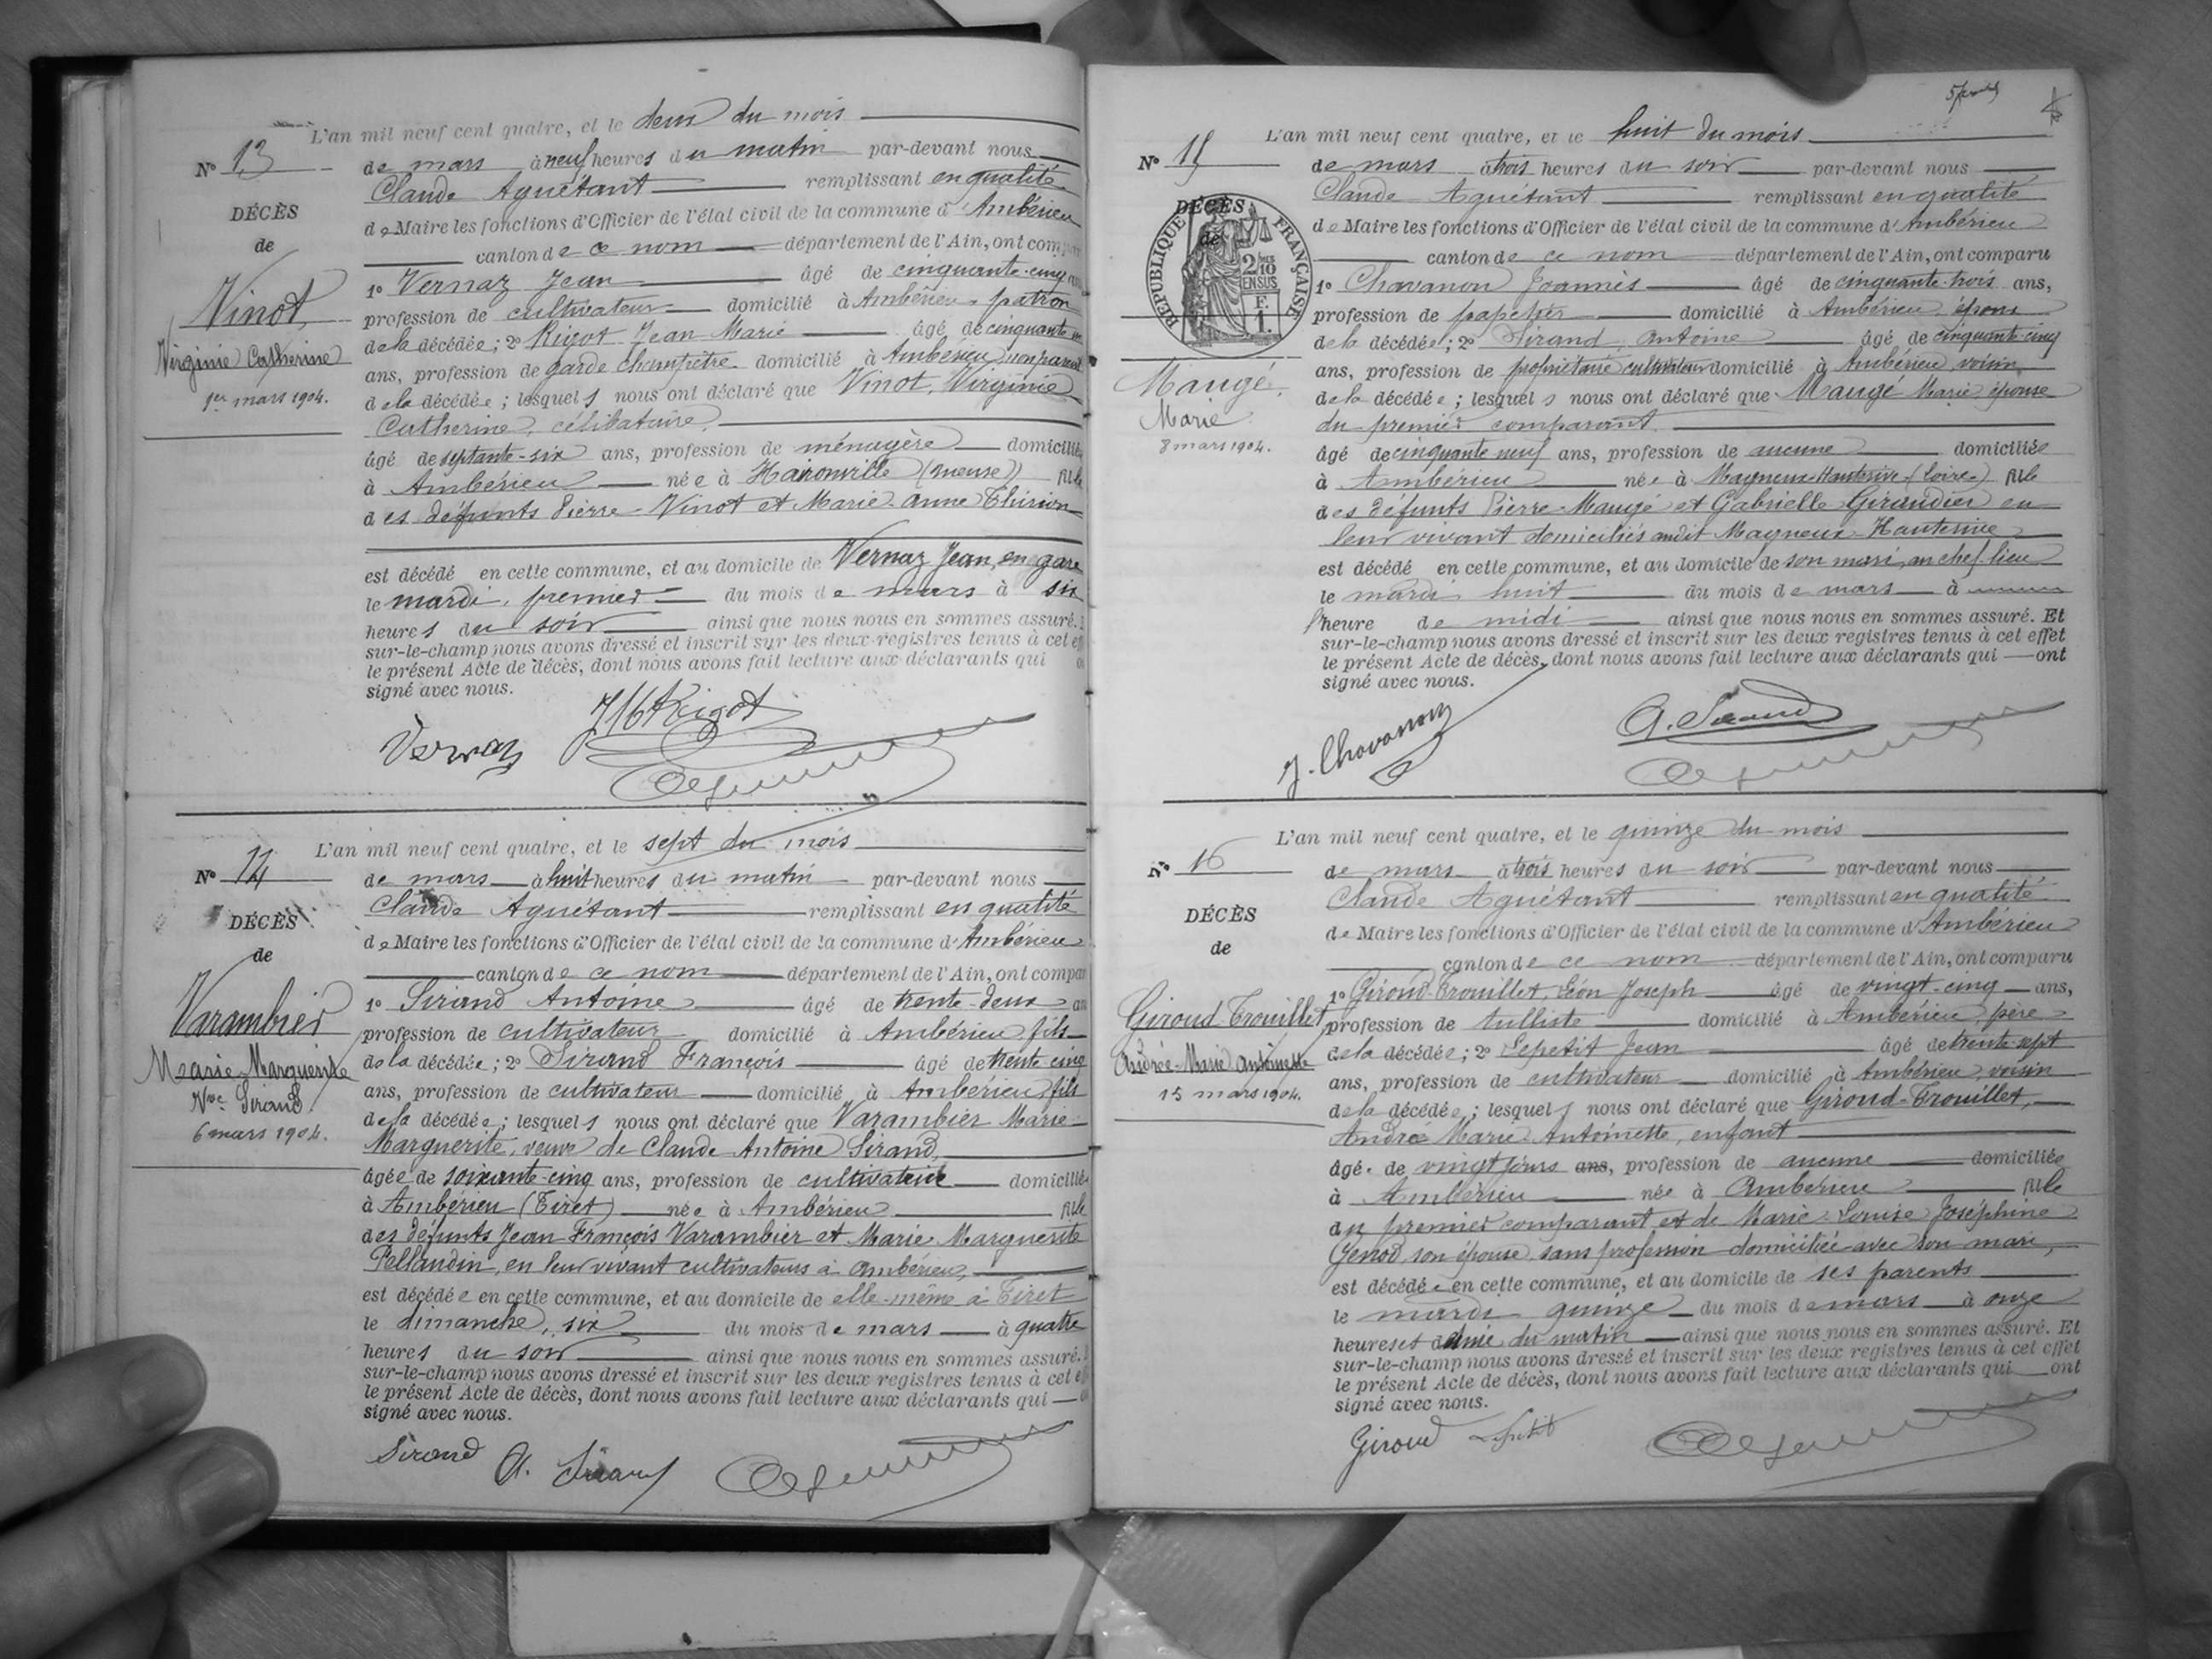 L'an mil neuf cent quatre, et le deux du mois
N° 13
de mars à neuf heures du matin par-devant nous
Claude Aguétant remplissant en qualité
DÉCÈS
de Maire les fonctions d'Officier de l'état civil de la commune d'Ambérieu
de
canton de ce nom département de l'Ain, ont compar
1° Vernaz Jean âgé de cinquante-cinq ans
Vinot,
profession de cultivateur domicilié à Ambérieu patron
de la décédée; 2° Rigot Jean Marie âgé de cinquante
Virginie Catherine
ans, profession de garde champêtre domicilié à Ambérieu non parent
1er mars 1904.
de la décédée; lesquels nous ont déclaré que Vinot, Virginie
Catherine, célibataire,
âgé de septante-six ans, profession de ménagère domiciliée
à Ambérieu née à Haironville (Meuse) fille
des défunts Pierre Vinot et Marie-Anne Thirion
est décédé en cette commune, et au domicile de Vernaz Jean, en gare
le mardi, premier du mois de mars à six
heures du soir ainsi que nous nous en sommes assuré.
sur-le-champ nous avons dressé et inscrit sur les deux registres tenus à cet eff
le présent Acte de décès, dont nous avons fait lecture aux déclarants qui
signé avec nous.
JM Rigot
Vernaz
L'an mil neuf cent quatre, et le sept du mois
N° 14
de mars à huit heures du matin par-devant nous
Claude Aguétant remplissant en qualité
DÉCÈS
de Maire les fonctions d'Officier de l'état civil de la commune d'Ambérieu
de
canton de ce nom département de l'Ain, ont compar
1° Sirand Antoine âgé de trente-deux ans
Varambier
profession de cultivateur domicilié à Ambérieu fils
Marie-Marguerite
de la décédée; 2° Sirand François âgé de trente-cinq
Vve Sirand.
ans, profession de cultivateur domicilié à Ambérieu fils
6 mars 1904.
de la décédée; lesquels nous ont déclaré que Varambier Marie-
Marguerite, veuve de Claude Antoine Sirand,
âgée de soixante-cinq ans, profession de cultivatrice domiciliée
à Ambérieu (Tiret) née à Ambérieu fille
des défunts Jean François Varambier et Marie Marguerite
Pellaudin, en leur vivant cultivateurs à Ambérieu,
est décédée en cette commune, et au domicile de elle-même à Tiret
le dimanche, six du mois de mars à quatre
heures du soir ainsi que nous nous en sommes assuré.
sur-le-champ nous avons dressé et inscrit sur les deux registres tenus à cet eff
le présent Acte de décès, dont nous avons fait lecture aux déclarants qui
signé avec nous.
Sirand A. Sirand
L'an mil neuf cent quatre, et le huit du mois
N° 15
de mars à trois heures du soir par-devant nous
Claude Aguétant remplissant en qualité
DÉCÈS
de
RÉPUBLIQUE FRANÇAISE
2/10 EN SUS
F. 1.
de Maire les fonctions d'Officier de l'état civil de la commune d'Ambérieu
canton de ce nom département de l'Ain, ont comparu
1° Chavanon Joannès âgé de cinquante-trois ans,
profession de papetier domicilié à Ambérieu époux
de la décédée; 2° Sirand, Antoine âgé de cinquante-cinq
Maugé,
ans, profession de propriétaire cultivateur domicilié à Ambérieu voisin
Marie
de la décédée; lesquels nous ont déclaré que Maugé Marie épouse
8 mars 1904.
du premier comparant
âgé de cinquante-neuf ans, profession de aucune domiciliée
à Ambérieu née à Magneux-Hauterive (Loire) fille
des défunts Pierre Maugé et Gabrielle Giraudier en
leur vivant domiciliés audit Magneux-Hauterive
est décédé en cette commune, et au domicile de son mari, au chef-lieu
le mardi huit du mois de mars à
l'heure de midi ainsi que nous nous en sommes assuré. Et
sur-le-champ nous avons dressé et inscrit sur les deux registres tenus à cet effet
le présent Acte de décès, dont nous avons fait lecture aux déclarants qui ont
signé avec nous.
J. Chavanon A. Sirand
L'an mil neuf cent quatre, et le quinze du mois
N° 16
de mars à trois heures du soir par-devant nous
Claude Aguétant remplissant en qualité
DÉCÈS
de Maire les fonctions d'Officier de l'état civil de la commune d'Ambérieu
de
canton de ce nom département de l'Ain, ont comparu
1° Giroud-Trouillet, Léon Joseph âgé de vingt-cinq ans,
Giroud-Trouillet
profession de tulliste domicilié à Ambérieu père
de la décédée; 2° Lepetit Jean âgé de trente-sept
Andrée-Marie Antoinette
ans, profession de cultivateur domicilié à Ambérieu voisin
15 mars 1904.
de la décédée; lesquels nous ont déclaré que Giroud-Trouillet,
Andrée Marie Antoinette, enfant
âgé de vingt jours ans, profession de aucune domiciliée
à Ambérieu née à Ambérieu fille
du premier comparant et de Marie Louise Joséphine
Genod, son épouse, sans profession domiciliée avec son mari,
est décédée en cette commune, et au domicile de ses parents
le mardi quinze du mois de mars à onze
heures et demie du matin ainsi que nous nous en sommes assuré. Et
sur-le-champ nous avons dressé et inscrit sur les deux registres tenus à cet effet
le présent Acte de décès, dont nous avons fait lecture aux déclarants qui ont
signé avec nous.
Giroud Lepetit